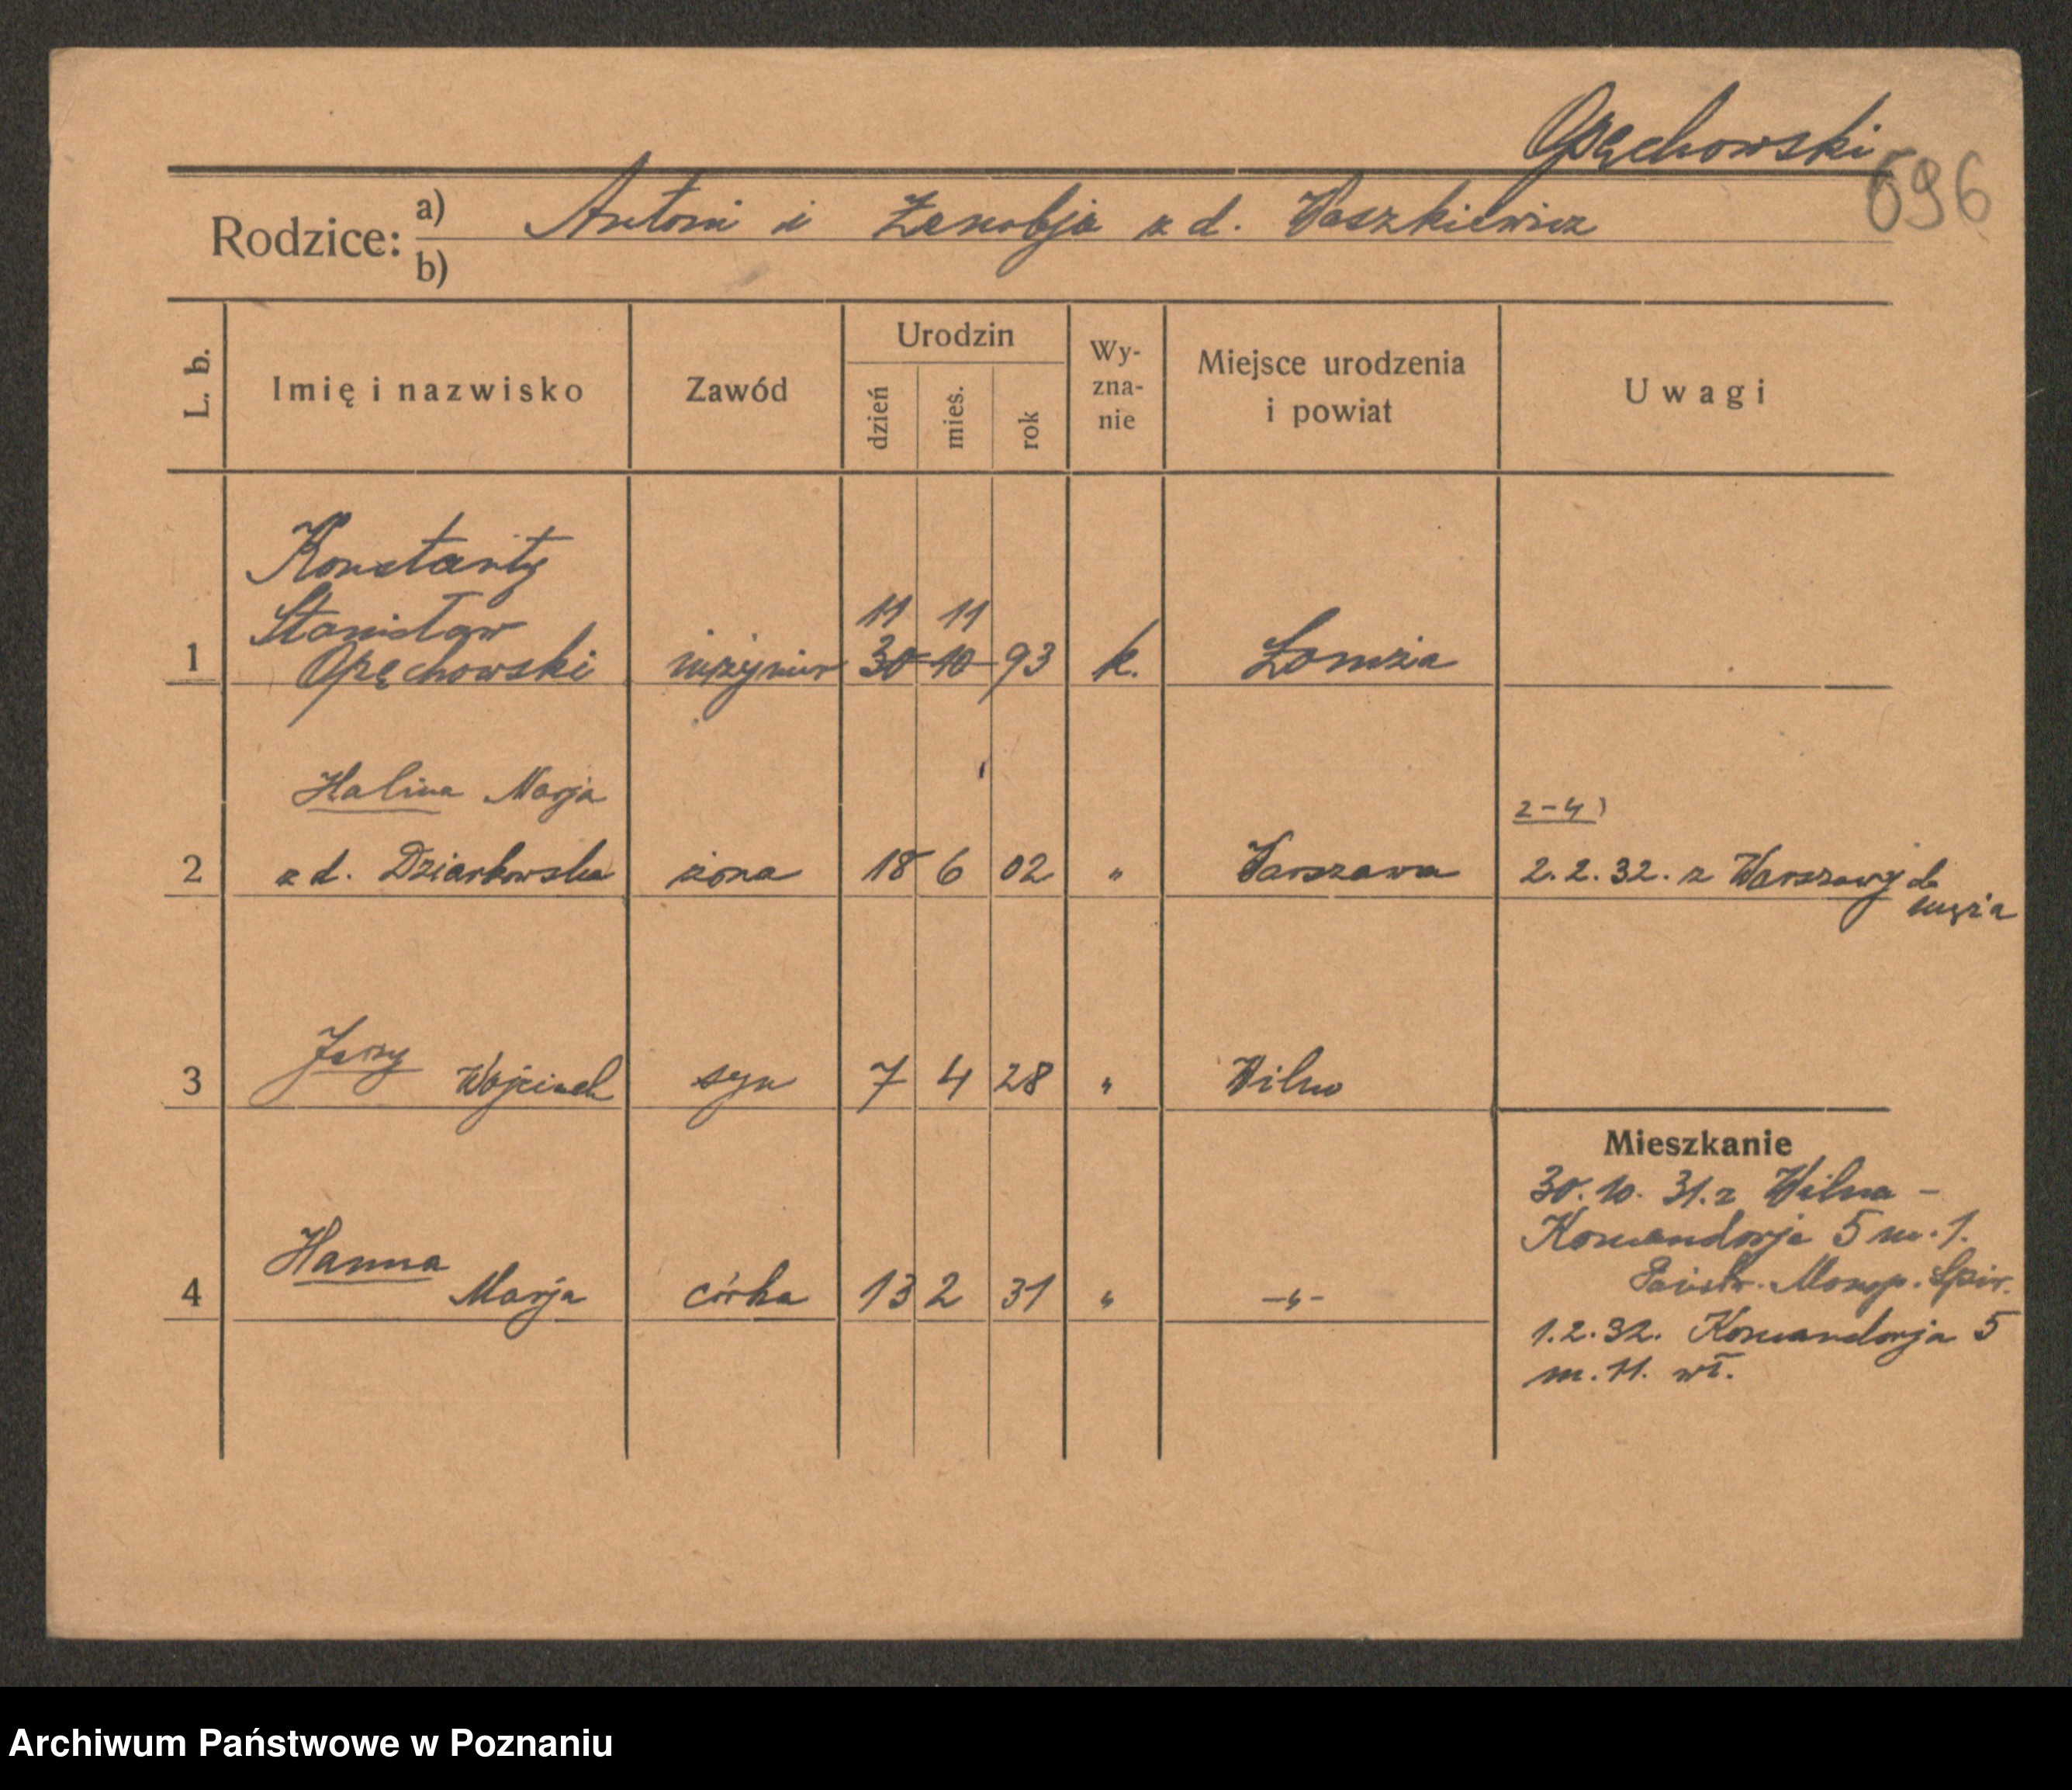 Opęchowski
696
Rodzice: a) Antoni i Zenobja z d. Waszkiewicz
b)
L. b. Imię i nazwisko Zawód Urodzin dzień mieś. rok Wy-zna-nie Miejsce urodzenia i powiat Uwagi
Konstanty
Stanisław 11 11
1 Opęchowski inżynier 30 10 93 k. Łomża
Halina Marja 2-4)
2 z d. Dziarkowska żona 18 6 02 " Warszawa 2.2.32. z Warszawy do
męża
3 Jerzy Wojciech syn 7 4 28 " Wilno
Mieszkanie
30.10.31. z Wilna -
Komandorja 5 m. 1.
Hanna Państw. Monop. Spir.
4 Marja córka 13 2 31 " -"-
1.2.32. Komandorja 5
m. 11. wł.
Archiwum Państwowe w Poznaniu